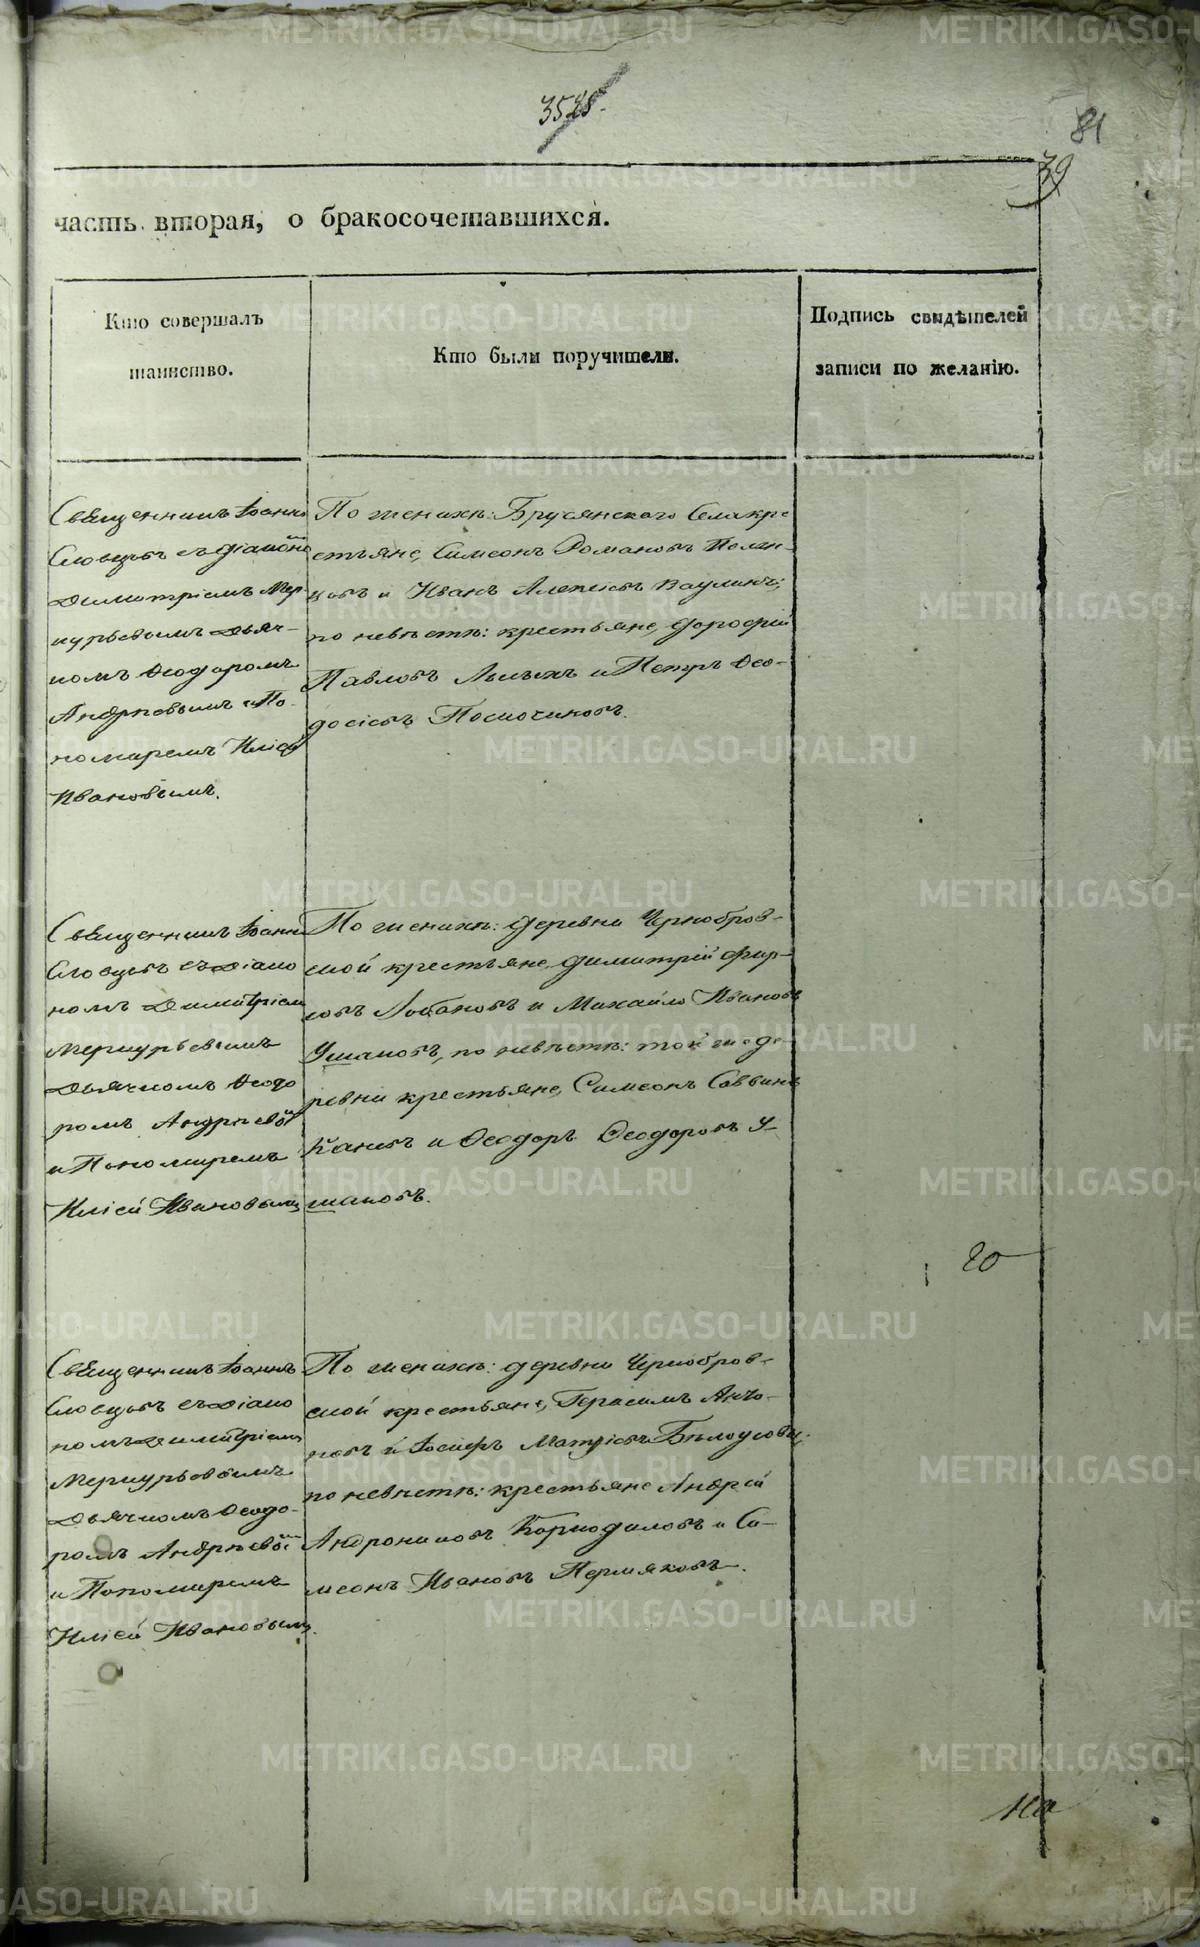 3525.
81
39
часть вторая, о бракосочетавшихся.
Кто совершалъ
таинство.
Кто были поручители.
Подпись свидѣтелей
записи по желанію.
Священникъ Іоаннъ
Словцовъ съ діакономъ
Димитріемъ Мер-
курьевымъ Дьяч-
комъ Ѳеодоромъ
Андреевымъ и По-
номаремъ Иліей
Ивановымъ.
По женихѣ: Бруснянского Села кре-
стьяне, Симеонъ Романовъ
и Иванъ Алексѣевъ Ваулинъ;
по невѣстѣ: крестьяне, Дорофей
Павловъ Лысыхъ и Петръ Ѳео-
досіевъ
Священникъ Іоаннъ
Словцовъ съ Діако
номъ Димитріемъ
Меркурьевымъ
Дьячкомъ Ѳеодо
ромъ Андреевымъ
и Пономаремъ
Иліей Ивановымъ
По женихѣ: деревни Чернобров-
ской крестьяне, Димитрій Фир-
совъ Лобановъ и Михайло Ивановъ
Ушаковъ, по невѣстѣ: той же де-
ревни крестьяне, Симеонъ Саввинъ
и Ѳеодоръ Ѳеодоровъ У-
шаковъ.
20
Священникъ Іоаннъ
Словцовъ съ Діако
номъ Димитріемъ
Меркурьевымъ
Дьячкомъ Ѳеодо-
ромъ Андреевымъ
и Пономаремъ
Иліей Ивановымъ.
По женихѣ: деревни Чернобров-
ской крестьяне, Герасимъ Анто-
новъ и Іосифъ Матвѣевъ Бѣлоусовы;
по невѣстѣ: крестьяне Андрей
Андрониковъ Коркодиловъ и Си-
меонъ Ивановъ Пермяковъ.
METRIKI.GASO-URAL.RU